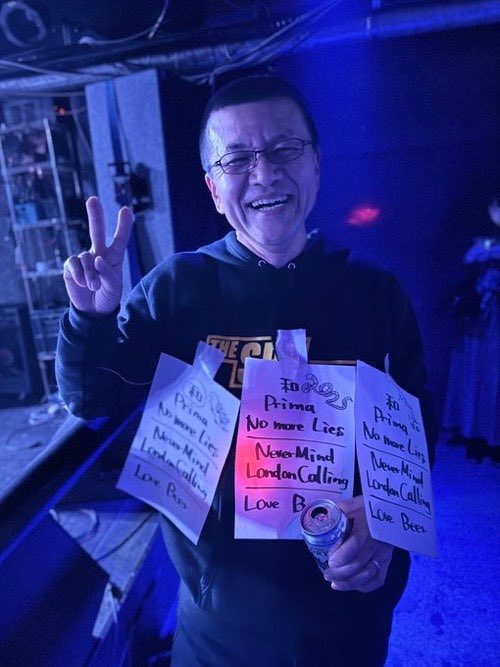 THE
和
Prima
No more Lies
Never Mind
London Calling
Love Beer
和
Prima
No more Lies
Never Mind
London Calling
Love B
和
Prima
No more Lies
Never Mind
London Calling
Love Beer